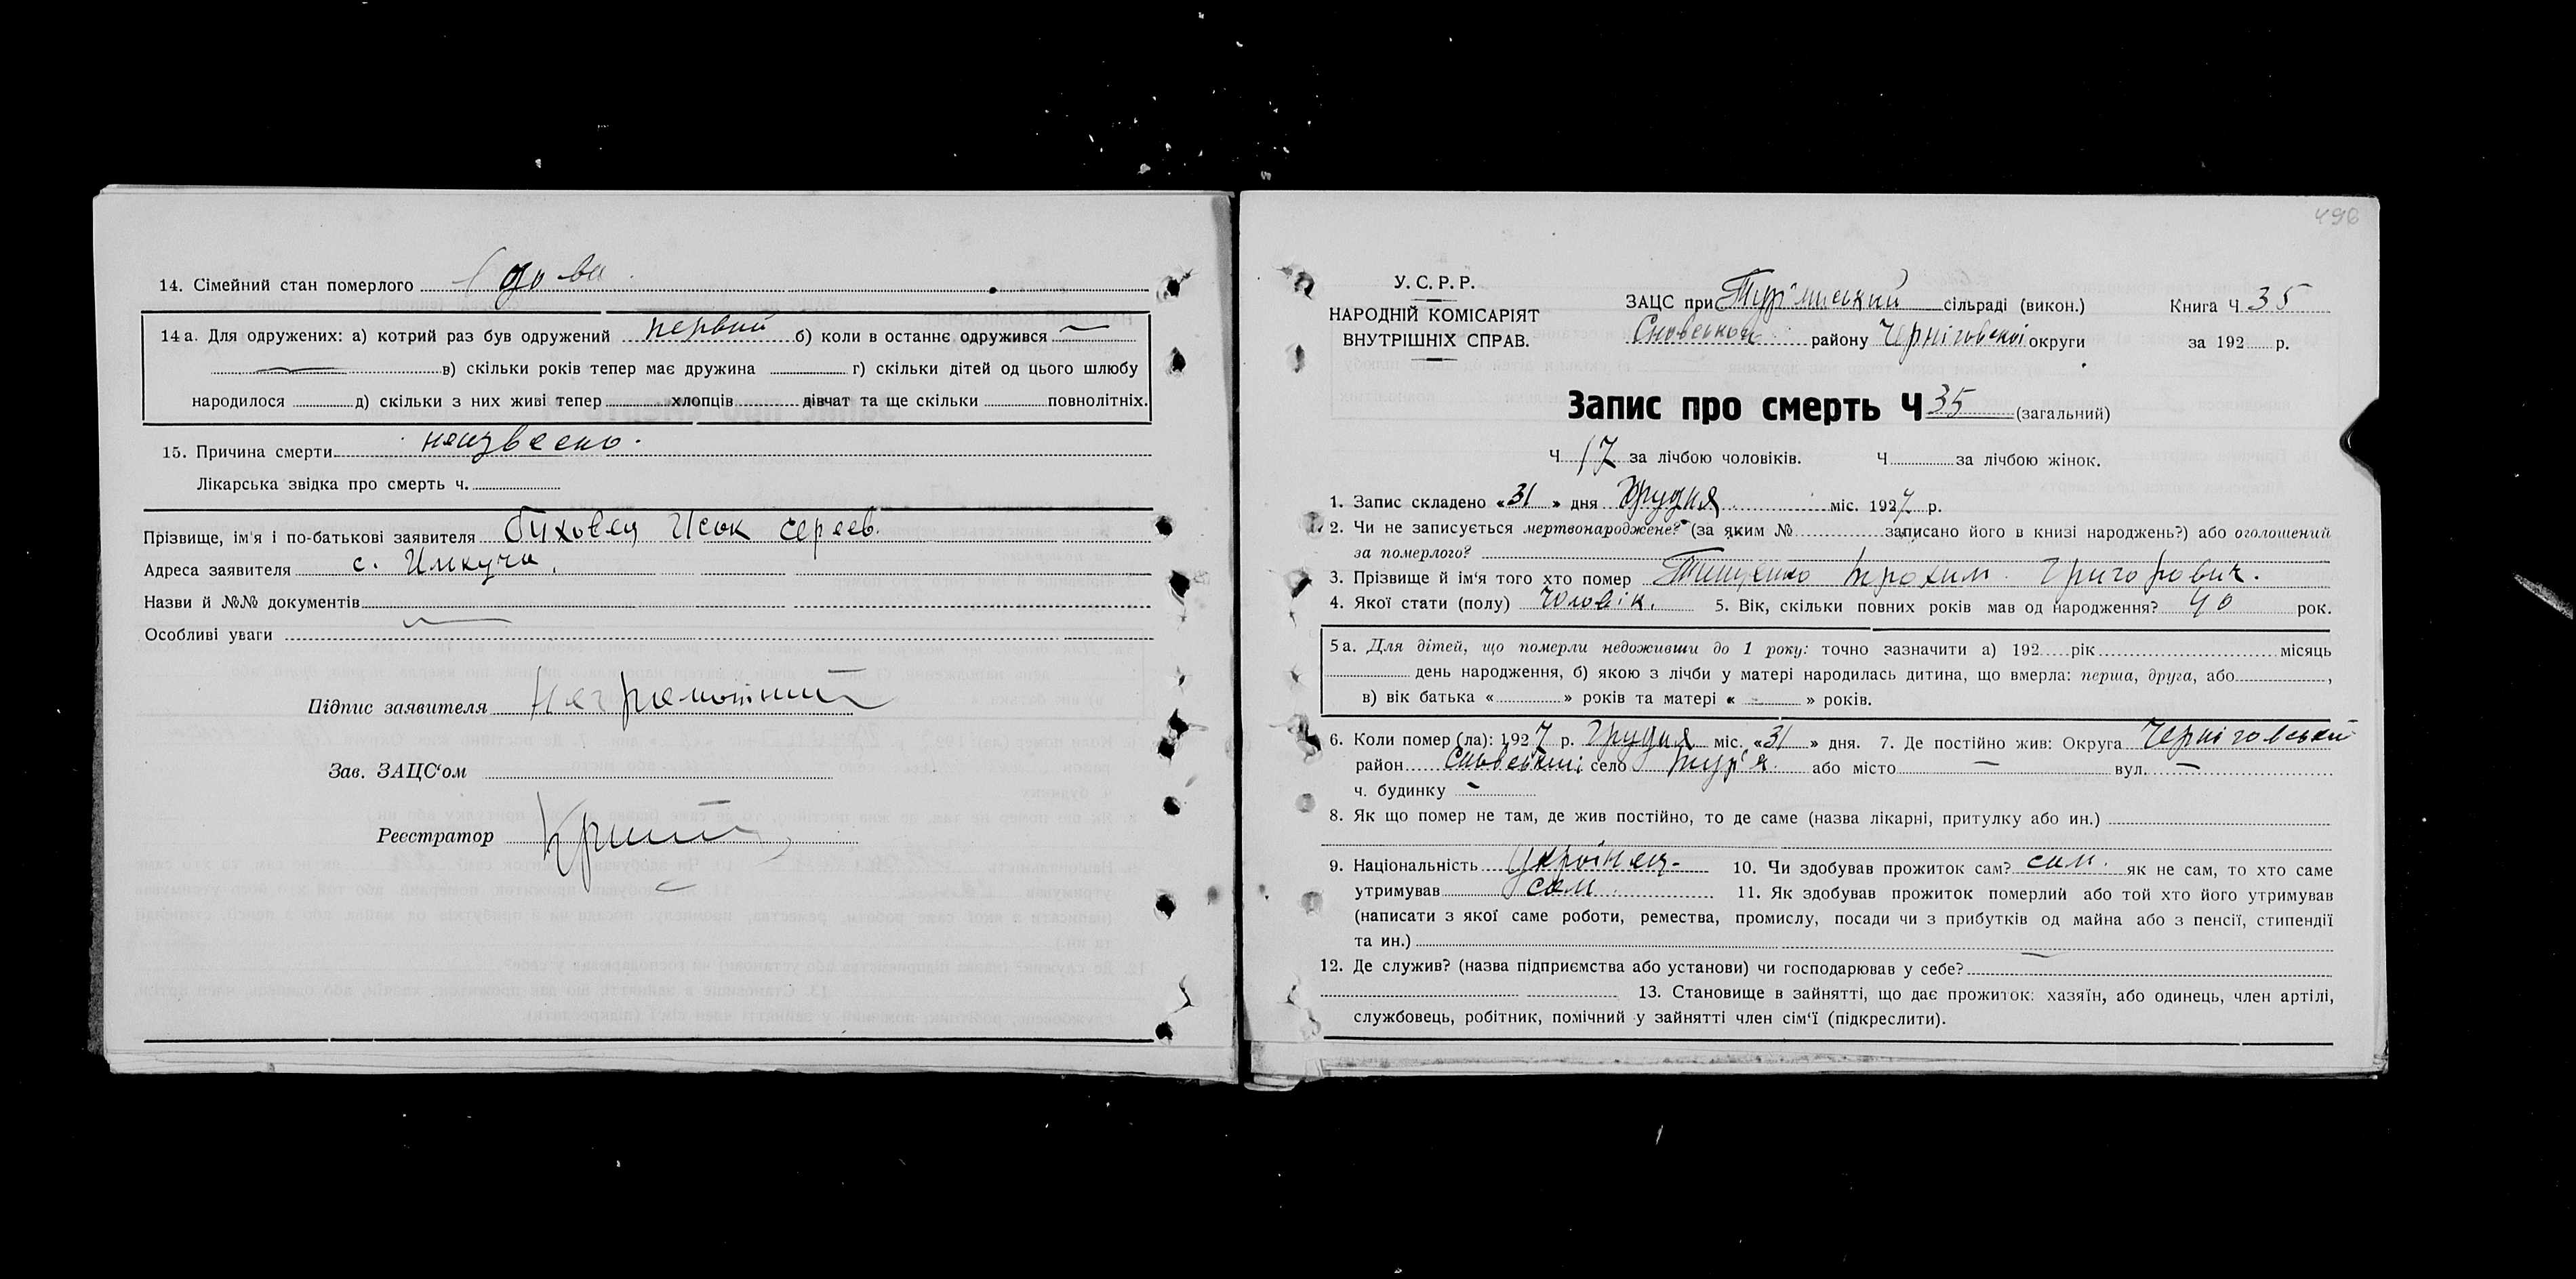 14. Сімейний стан померлого вдова
14 а. Для одружених: а) котрий раз був одружений первий б) коли в останнє одружився —
— в) скільки років тепер має дружина г) скільки дітей од цього шлюбу
народилося д) скільки з них живі тепер хлопців дівчат та ще скільки повнолітніх.
15. Причина смерти неизвесно.
Лікарська звідка про смерть ч.
Прізвище, ім'я і по-батькові заявителя Биховец Исак сергеев.
Адреса заявителя с.
Назви й №№ документів
Особливі уваги —
Підпис заявителя Неграмотний
Зав. ЗАЦС'ом
Реєстратор
498
У. С. Р. Р.
НАРОДНІЙ КОМІСАРІЯТ
ВНУТРІШНІХ СПРАВ.
ЗАЦС при сільраді (викон.) Книга Ч 35
Сновської району Черніговської округи за 192 р.
Запис про смерть Ч 35 (загальний)
Ч 17 за лічбою чоловіків. Ч за лічбою жінок.
1. Запис складено « 31 » дня Грудня міс. 1927 р.
2. Чи не записується мертвонароджене? (за яким № записано його в книзі народжень?) або оголошений
за померлого?
3. Прізвище й ім'я того хто помер Тищенко трохим Григорович.
4. Якої стати (полу) Чоловік. 5. Вік, скільки повних років мав од народження? 40 рок.
5 а. Для дітей, що померли недоживши до 1 року: точно зазначити а) 192 рік місяць
день народження, б) якою з лічби у матері народилась дитина, що вмерла: перша, друга, або ,
в) вік батька « » років та матері « » років.
6. Коли помер (ла): 1927 р. Грудня міс. « 31 » дня. 7. Де постійно жив: Округа Черніговський
район Сновський село Тур'я або місто — вул. —
ч. будинку —
8. Як що помер не там, де жив постійно, то де саме (назва лікарні, притулку або ин.)
9. Національність Украінец 10. Чи здобував прожиток сам? сам. як не сам, то хто саме
утримував сам. 11. Як здобував прожиток померлий або той хто його утримував
(написати з якої саме роботи, ремества, промислу, посади чи з прибутків од майна або з пенсії, стипендії
та ин.)
12. Де служив? (назва підприємства або установи) чи господарював у себе?
13. Становище в зайнятті, що дає прожиток: хазяїн, або одинець, член артілі,
службовець, робітник, помічний у зайнятті член сім'ї (підкреслити).